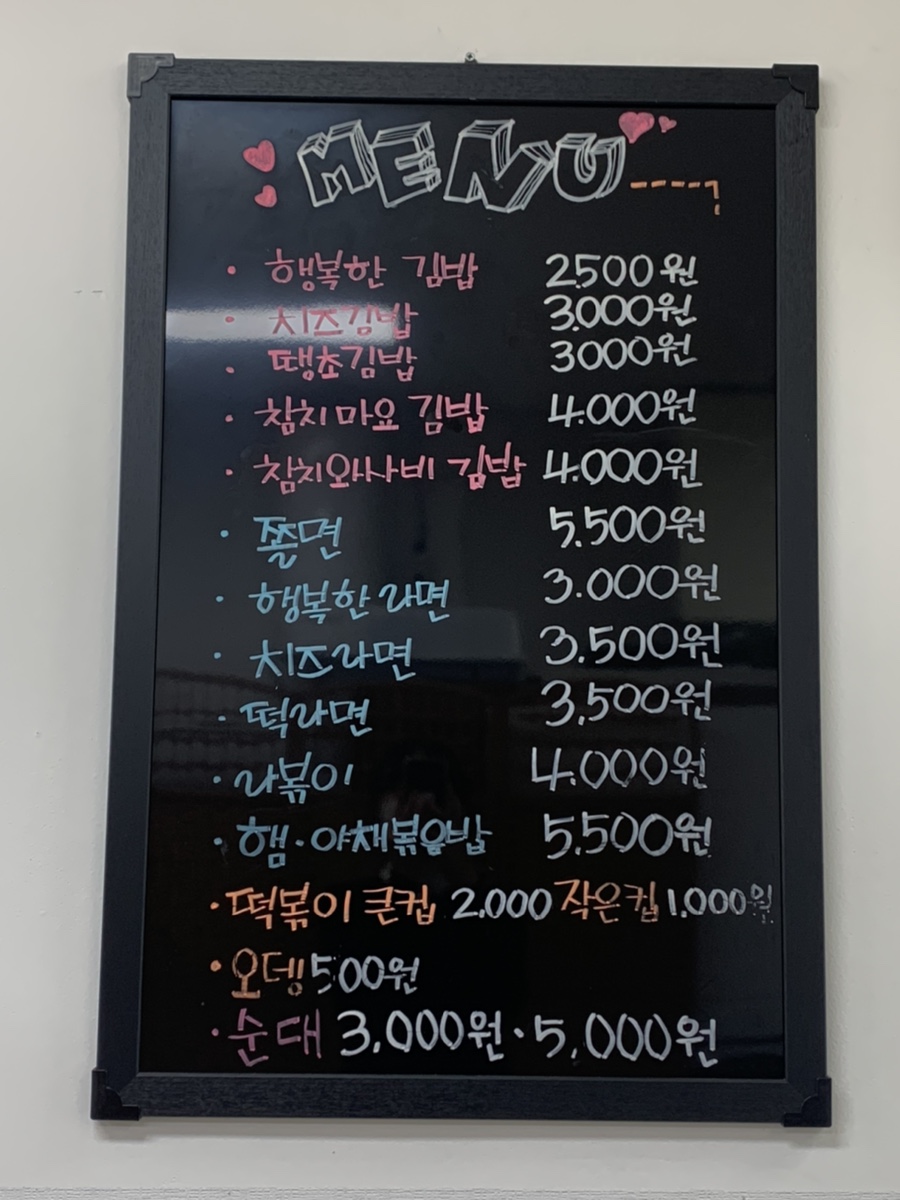 MENU
· 행복한 김밥 2500원
· 치즈김밥 3.000원
· 땡초김밥 3000원
· 참치마요 김밥 4.000원
· 참치와사비 김밥 4.000원
· 쫄면 5.500원
· 행복한라면 3.000원
· 치즈라면 3.500원
· 떡라면 3,500원
· 라볶이 4.000원
· 햄·야채볶음밥 5,500원
· 떡볶이 큰컵 2.000 작은컵 1.000원
· 오뎅 500원
· 순대 3,000원 · 5,000원